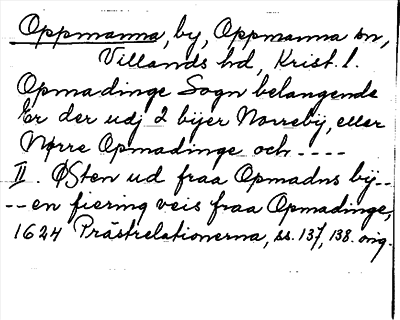 Oppmanna, by, Oppmanna sn,
Villands hd, Krist. l.
Opmadinge Sogn belangende
Er der udj 2 bijer Norrebij, eller
Nørre Opmadinge och ----
II. Østen ud fraa Opmadns bij--
--en fiering veis fraa Opmadinge,
1624 Prästrelationerna, ss. 137, 138. orig.